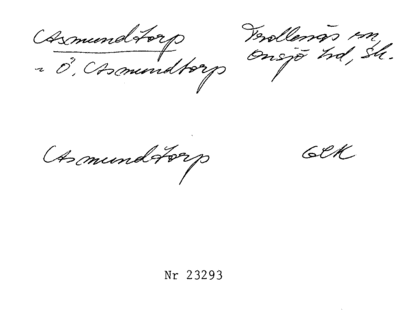 Asmundtorp Trollenäs sn,
~ Ö. Asmundtorp Onsjö hd, Sk.
Asmundtorp GEK
Nr 23293